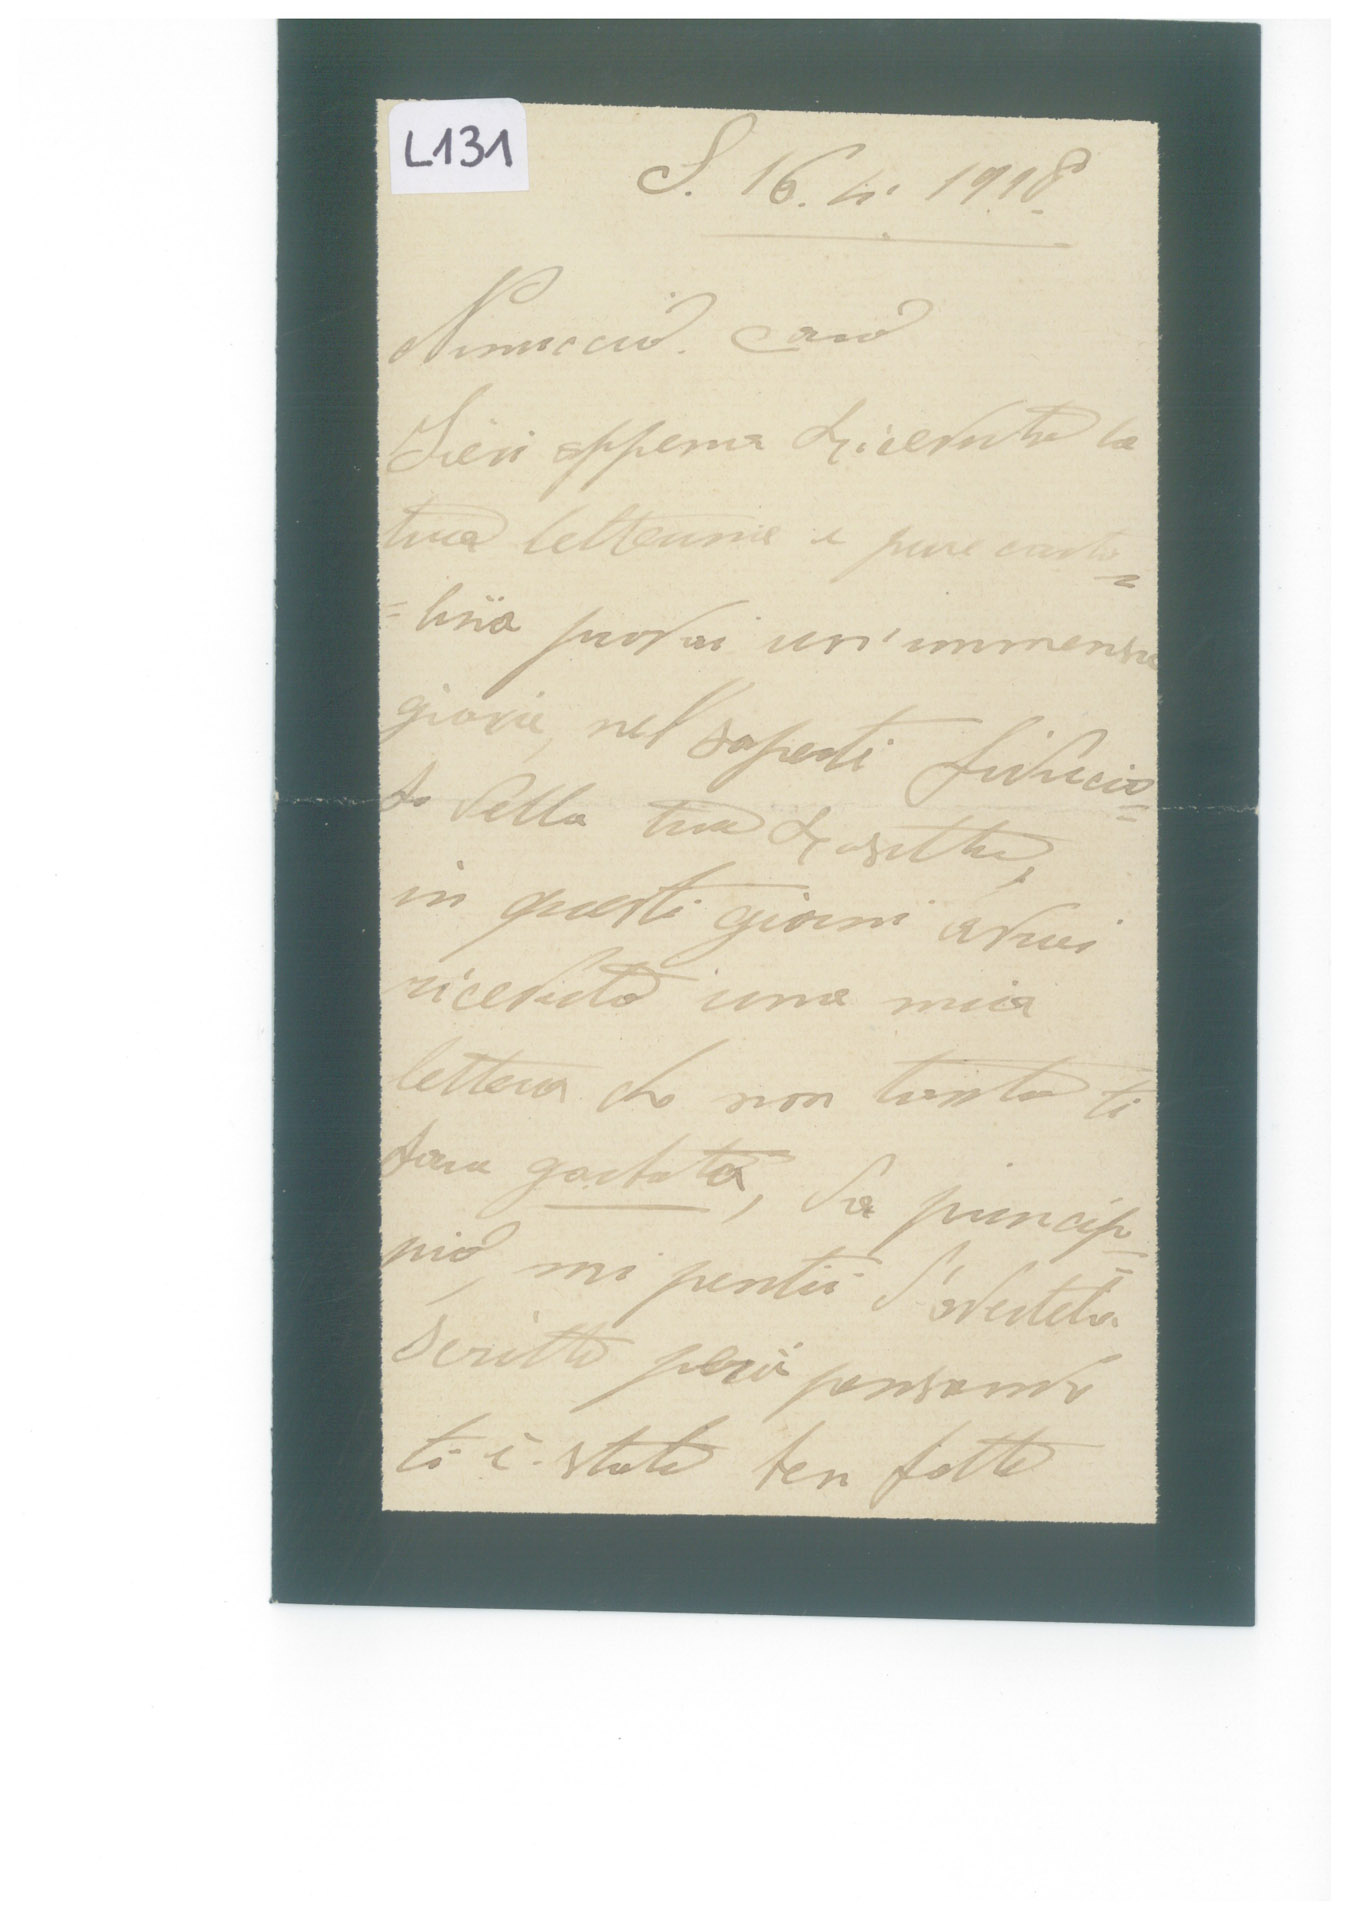 L131
S. 16. 4. 1918.
Ninuccio caro
Ieri appena ricevuta la
tua letterina e pure carto=
=lina provai un'immensa
gioia, nel saperti fiducio=
so della tua Rosetta,
in questi giorni avrai
ricevuto una mia
lettera che non tanto ti
sara gustata, da princip=
pio, mi pentii d'avertela
scritto però pensando
ti è stato ben fatto